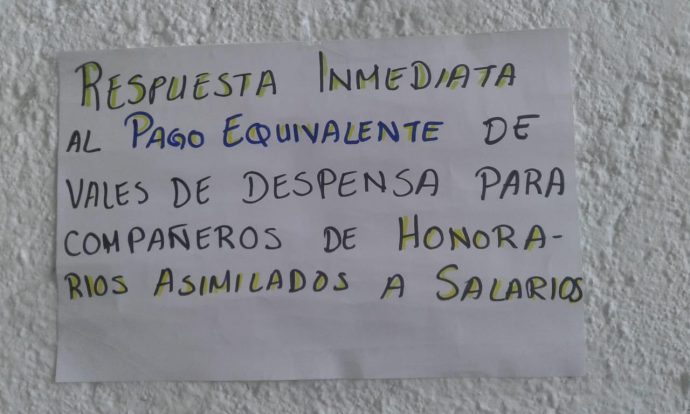 RESPUESTA INMEDIATA
AL PAGO EQUIVALENTE DE
VALES DE DESPENSA PARA
COMPAÑEROS DE HONORA-
RIOS ASIMILADOS A SALARIOS